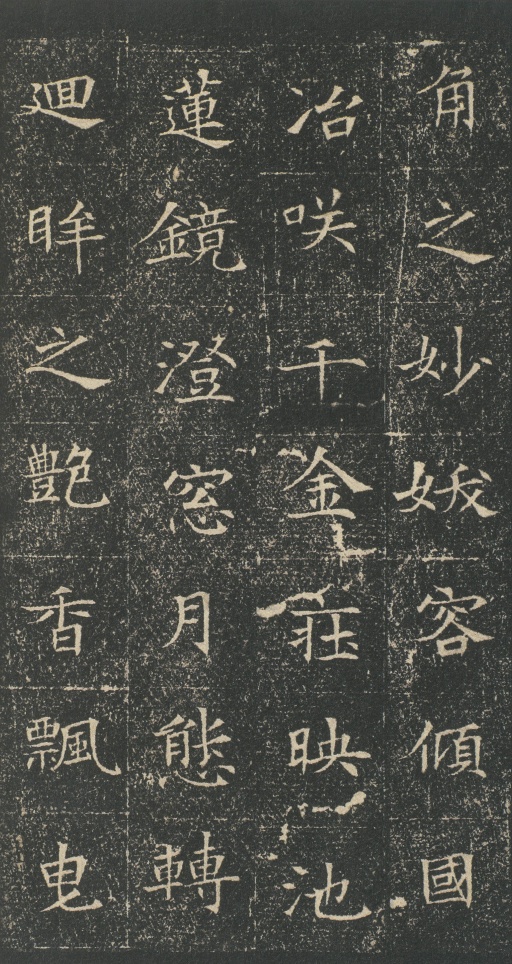 角之妙娥容傾國
冶咲千金莊映池
蓮鏡澄窓月態轉
迴眸之艶香飄曳